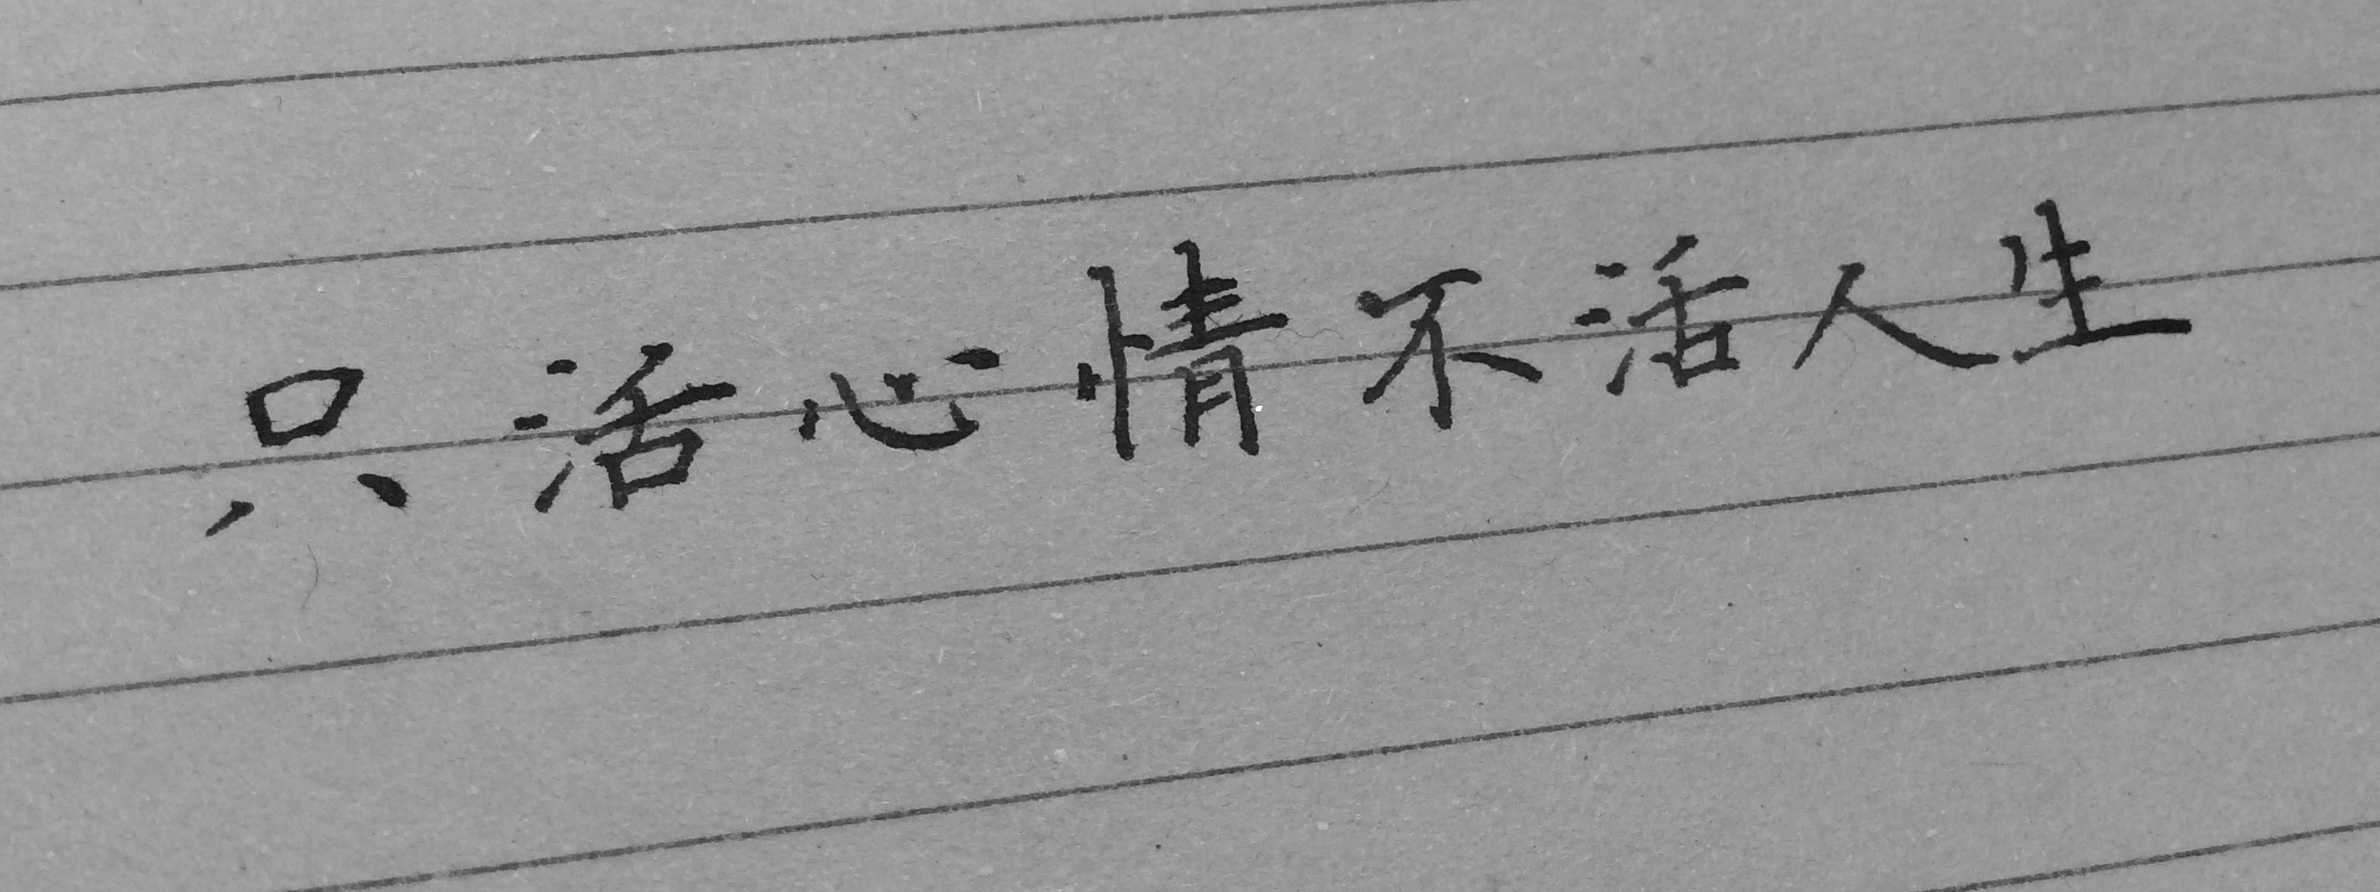 只活心情不活人生